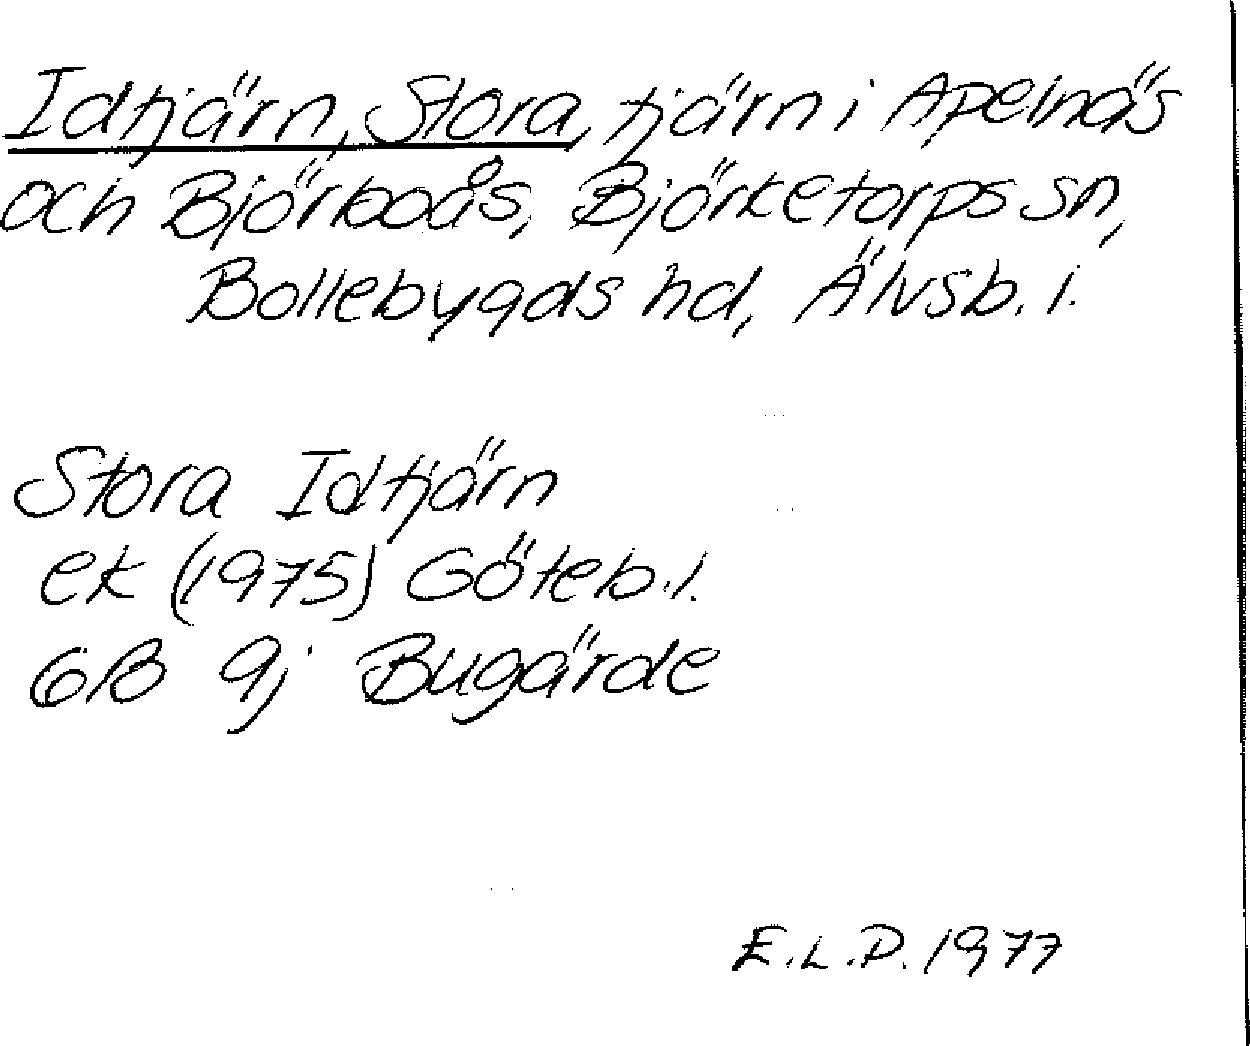 Idtjärn, Stora, tjärn i Apelnäs
och Björboås, Björketorps sn,
Bollebygds hd, Älvsb. l.
Stora Idtjärn
ek (1975) Göteb. l.
6B 9j Bugärde
E.L.P. 1977